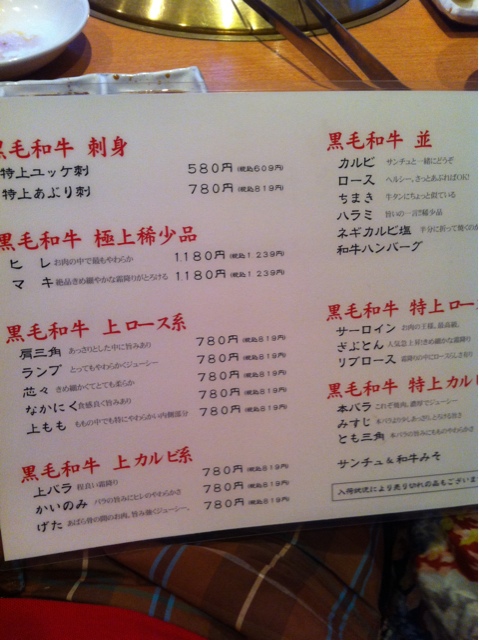 黒毛和牛 刺身
特上ユッケ刺 580円(税込609円)
特上あぶり刺 780円(税込819円)
黒毛和牛 極上稀少品
ヒレ お肉の中で最もやわらか 1.180円(税込1.239円)
マキ 絶品きめ細やかな霜降りがとろける 1.180円(税込1.239円)
黒毛和牛 上ロース系
肩三角 あっさりとした中に旨みあり 780円(税込819円)
ランプ とってもやわらかくジューシー 780円(税込819円)
芯々 きめ細かくてとても柔らか 780円(税込819円)
なかにく 食感良く旨みあり 780円(税込819円)
上もも ももの中でも特にやわらかい内側部分 780円(税込819円)
黒毛和牛 上カルビ系
上バラ 程良い霜降り 780円(税込819円)
かいのみ バラの旨みにヒレのやわらかさ 780円(税込819円)
げた あばら骨の間のお肉。旨み強くジューシー。 780円(税込819円)
黒毛和牛 並
カルビ サンチュと一緒にどうぞ
ロース ヘルシー。さっとあぶればOK!
ちまき 牛タンにちょっと似ている
ハラミ 旨いの一言!!稀少品
ネギカルビ塩 半分に折って焼くのが
和牛ハンバーグ
黒毛和牛 特上ロー
サーロイン お肉の王様。最高級。
ぎぶとん 人気急上昇!きめ細かな霜降り
リブロース 霜降りの中にロースらしさ有り
黒毛和牛 特上カル
本バラ これぞ焼肉。濃厚でジューシー
みすじ 本バラより少しあっさりとろける旨さ
とも三角 本バラの旨みにもものやわらかさ
サンチュ&和牛みそ
入荷状況により売り切れの品もございま